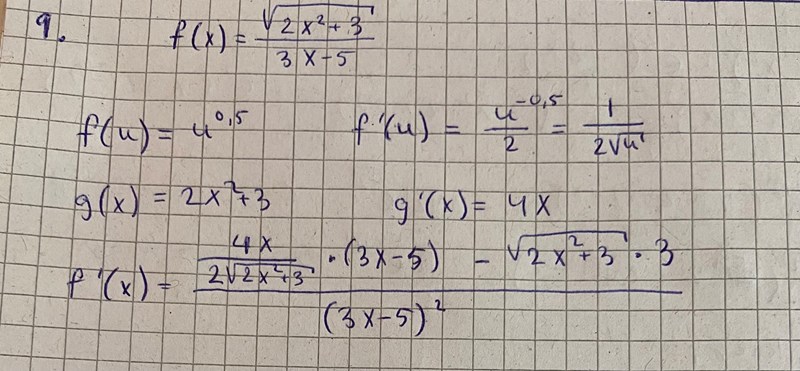 9. f(x) = √(2x²+3) / (3x-5)
f(u) = u^0,5 f'(u) = u^-0,5 / 2 = 1 / (2√u)
g(x) = 2x²+3 g'(x) = 4x
f'(x) = (4x / (2√(2x²+3)) · (3x-5) - √(2x²+3) · 3) / (3x-5)²